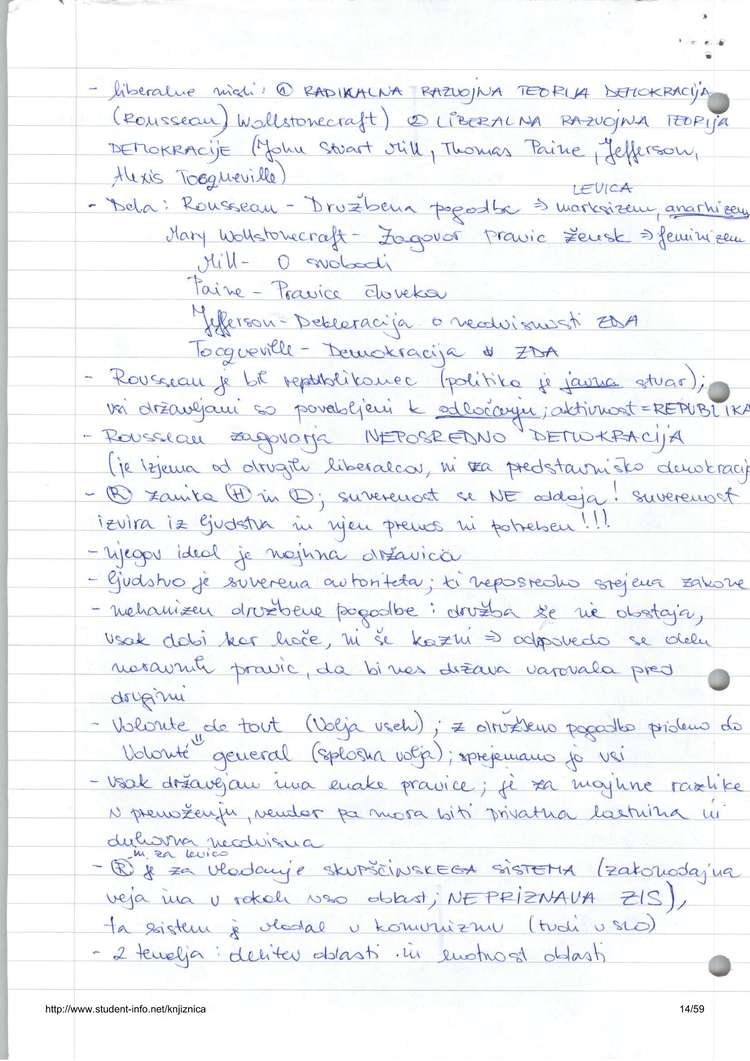 - liberalne misli: ① RADIKALNA RAZVOJNA TEORIJA DEMOKRACIJA
(Rousseau) Wollstonecraft) ② LIBERALNA RAZVOJNA TEORIJA
DEMOKRACIJE (John Stuart Mill, Thomas Paine, Jefferson,
Alexis Tocqueville)
LEVICA
- Dela: Rousseau - Družbena pogodba ⇒ marksizem, anarhizem
Mary Wollstonecraft - Zagovor pravic žensk ⇒ feminizem
Mill - O svobodi
Paine - Pravice človeka
Jefferson - Deklaracija o neodvisnosti ZDA
Tocqueville - Demokracija v ZDA
- Rousseau je bil republikanec (politika je javna stvar);
vsi državljani so povabljeni k odločanju; aktivnost = REPUBLIKA
- Rousseau zagovarja NEPOSREDNO DEMOKRACIJA
(je izjema od drugih liberalcov, ni za predstavniško demokracijo
- Ⓡ zanika Ⓗ in Ⓛ; suverenost se NE oddaja! suverenost
izvira iz ljudstva in njen prenos ni potreben!!!
- njegov ideal je majhna državica
- ljudstvo je suverena avtoriteta; ki neposredno srejema zakone
- mehanizem družbene pogodbe: družba še ne obstaja,
vsak dobi kar hoče, ni še kazni ⇒ odpovedo se delu
naravnih pravic, da bi nas država varovala pred
drugimi
- Volonte de tout (Volja vseh); z družbeno pogodbo pridemo do
Volonté general (splošna volja); sprejemamo jo vsi
- vsak državljan ima enake pravice; je za majhne razlike
v premoženju, vendar pa mora biti privatna lastnina in
duhovna neodvisna
in za levico
- Ⓡ je za vladanje SKUPŠČINSKEGA SISTEMA (zakonodajna
veja ima v rokah vso oblast; NE PRIZNAVA ZIS),
ta sistem je vladal v komunizmu (tudi v SLO)
- 2 temelja: delitev oblasti in enotnost oblasti
http://www.student-info.net/knjiznica
14/59